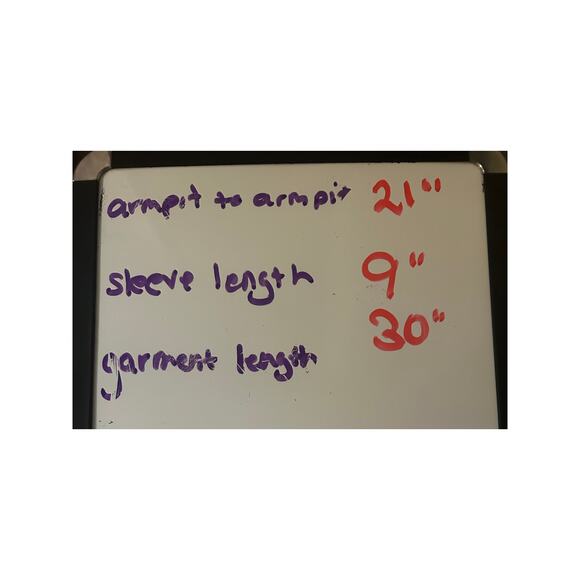 armpit to armpit 21"
sleeve length 9"
garment length 30"